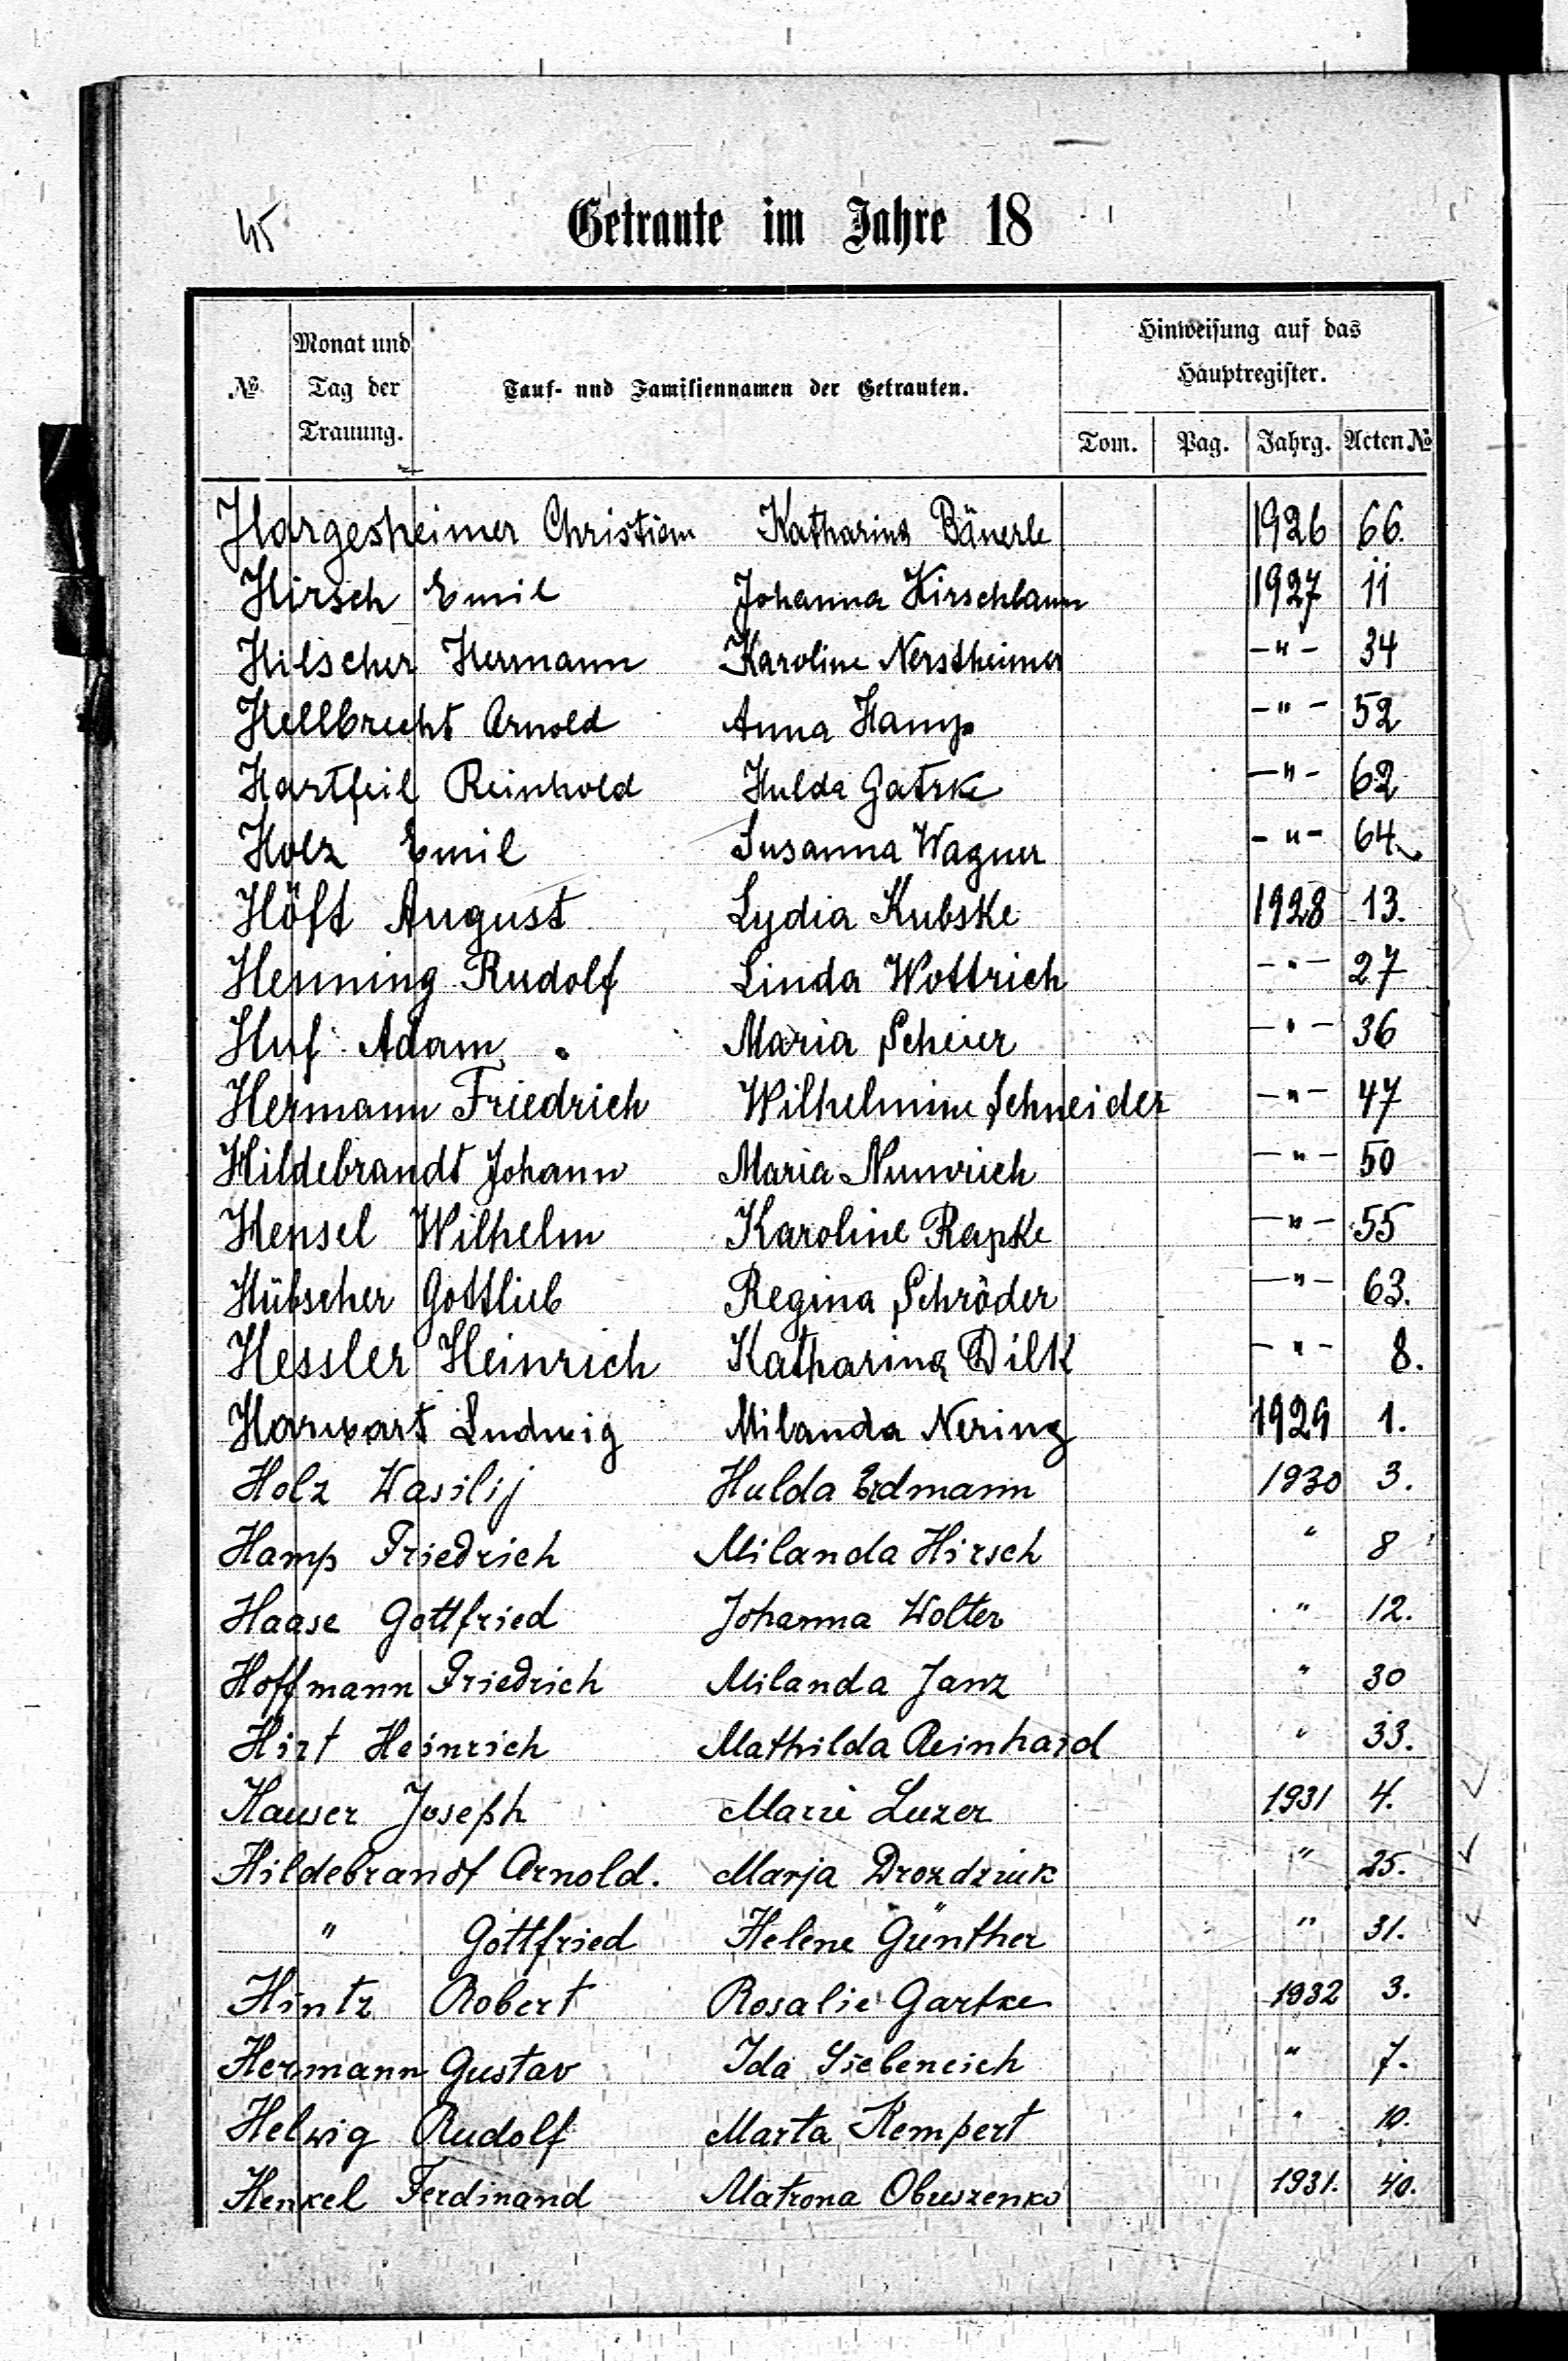 45
Getraute im Jahre 18
№ Monat und Tag der Trauung. Tauf- und Familiennamen der Getrauten. Hinweisung auf das Hauptregister.
Tom. Pag. Jahrg. Acten №
Hargesheimer Christian Katharina Bäuerle 1926 66.
Hirsch Emil Johanna Kirschbaum 1927 11
Hilscher Hermann Karoline Nerstheimer -"- 34
Hellbrecht Arnold Anna Hamp -"- 52
Hartfeil Reinhold Hulda Gatzke -"- 62
Holz Emil Susanna Wagner -"- 64
Höft August Lydia Kubske 1928 13.
Henning Rudolf Linda Wottrich -"- 27
Huf Adam Maria Scheier -"- 36
Hermann Friedrich Wilhelmine Schneider -"- 47
Hildebrandt Johann Maria Numrich -"- 50
Hensel Wilhelm Karoline Rapske -"- 55
Hübscher Gottlieb Regina Schröder -"- 63.
Hessler Heinrich Katharina Dilk -"- 8.
Harwart Ludwig Milanda Nering 1929 1.
Holz Wasilij Hulda Erdmann 1930 3.
Hamp Friedrich Milanda Hirsch " 8
Haase Gottfried Johanna Wolter " 12.
Hoffmann Friedrich Milanda Janz " 30
Hirt Heinrich Mathilda Reinhard " 33.
Hauser Joseph Marie Luzer 1931 4.
Hildebrandt Arnold. Marja Drozdziuk " 25.
" Gottfried Helene Günther " 31.
Hintz Robert Rosalie Gartke 1932 3.
Hermann Gustav Ida Siebeneich " 7.
Helwig Rudolf Marta Kempert " 10.
Henkel Ferdinand Matrona Obuszenko 1931. 40.